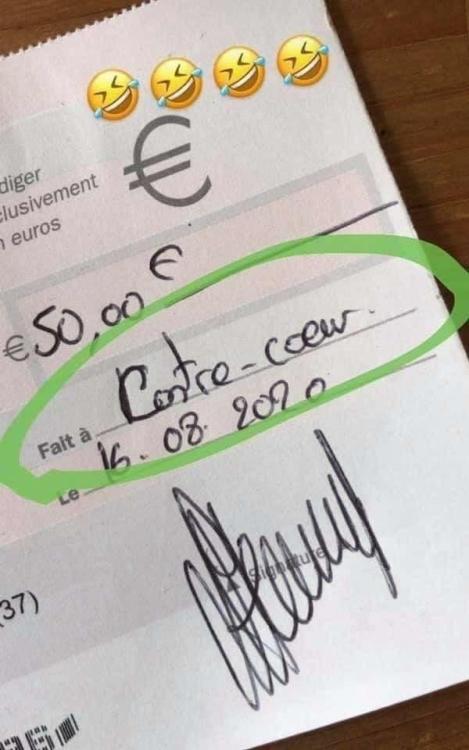 €
diger
clusivement
n euros
€50,00 €
Fait à Contre-coeur.
Le 16.08.2020
Signature
(37)